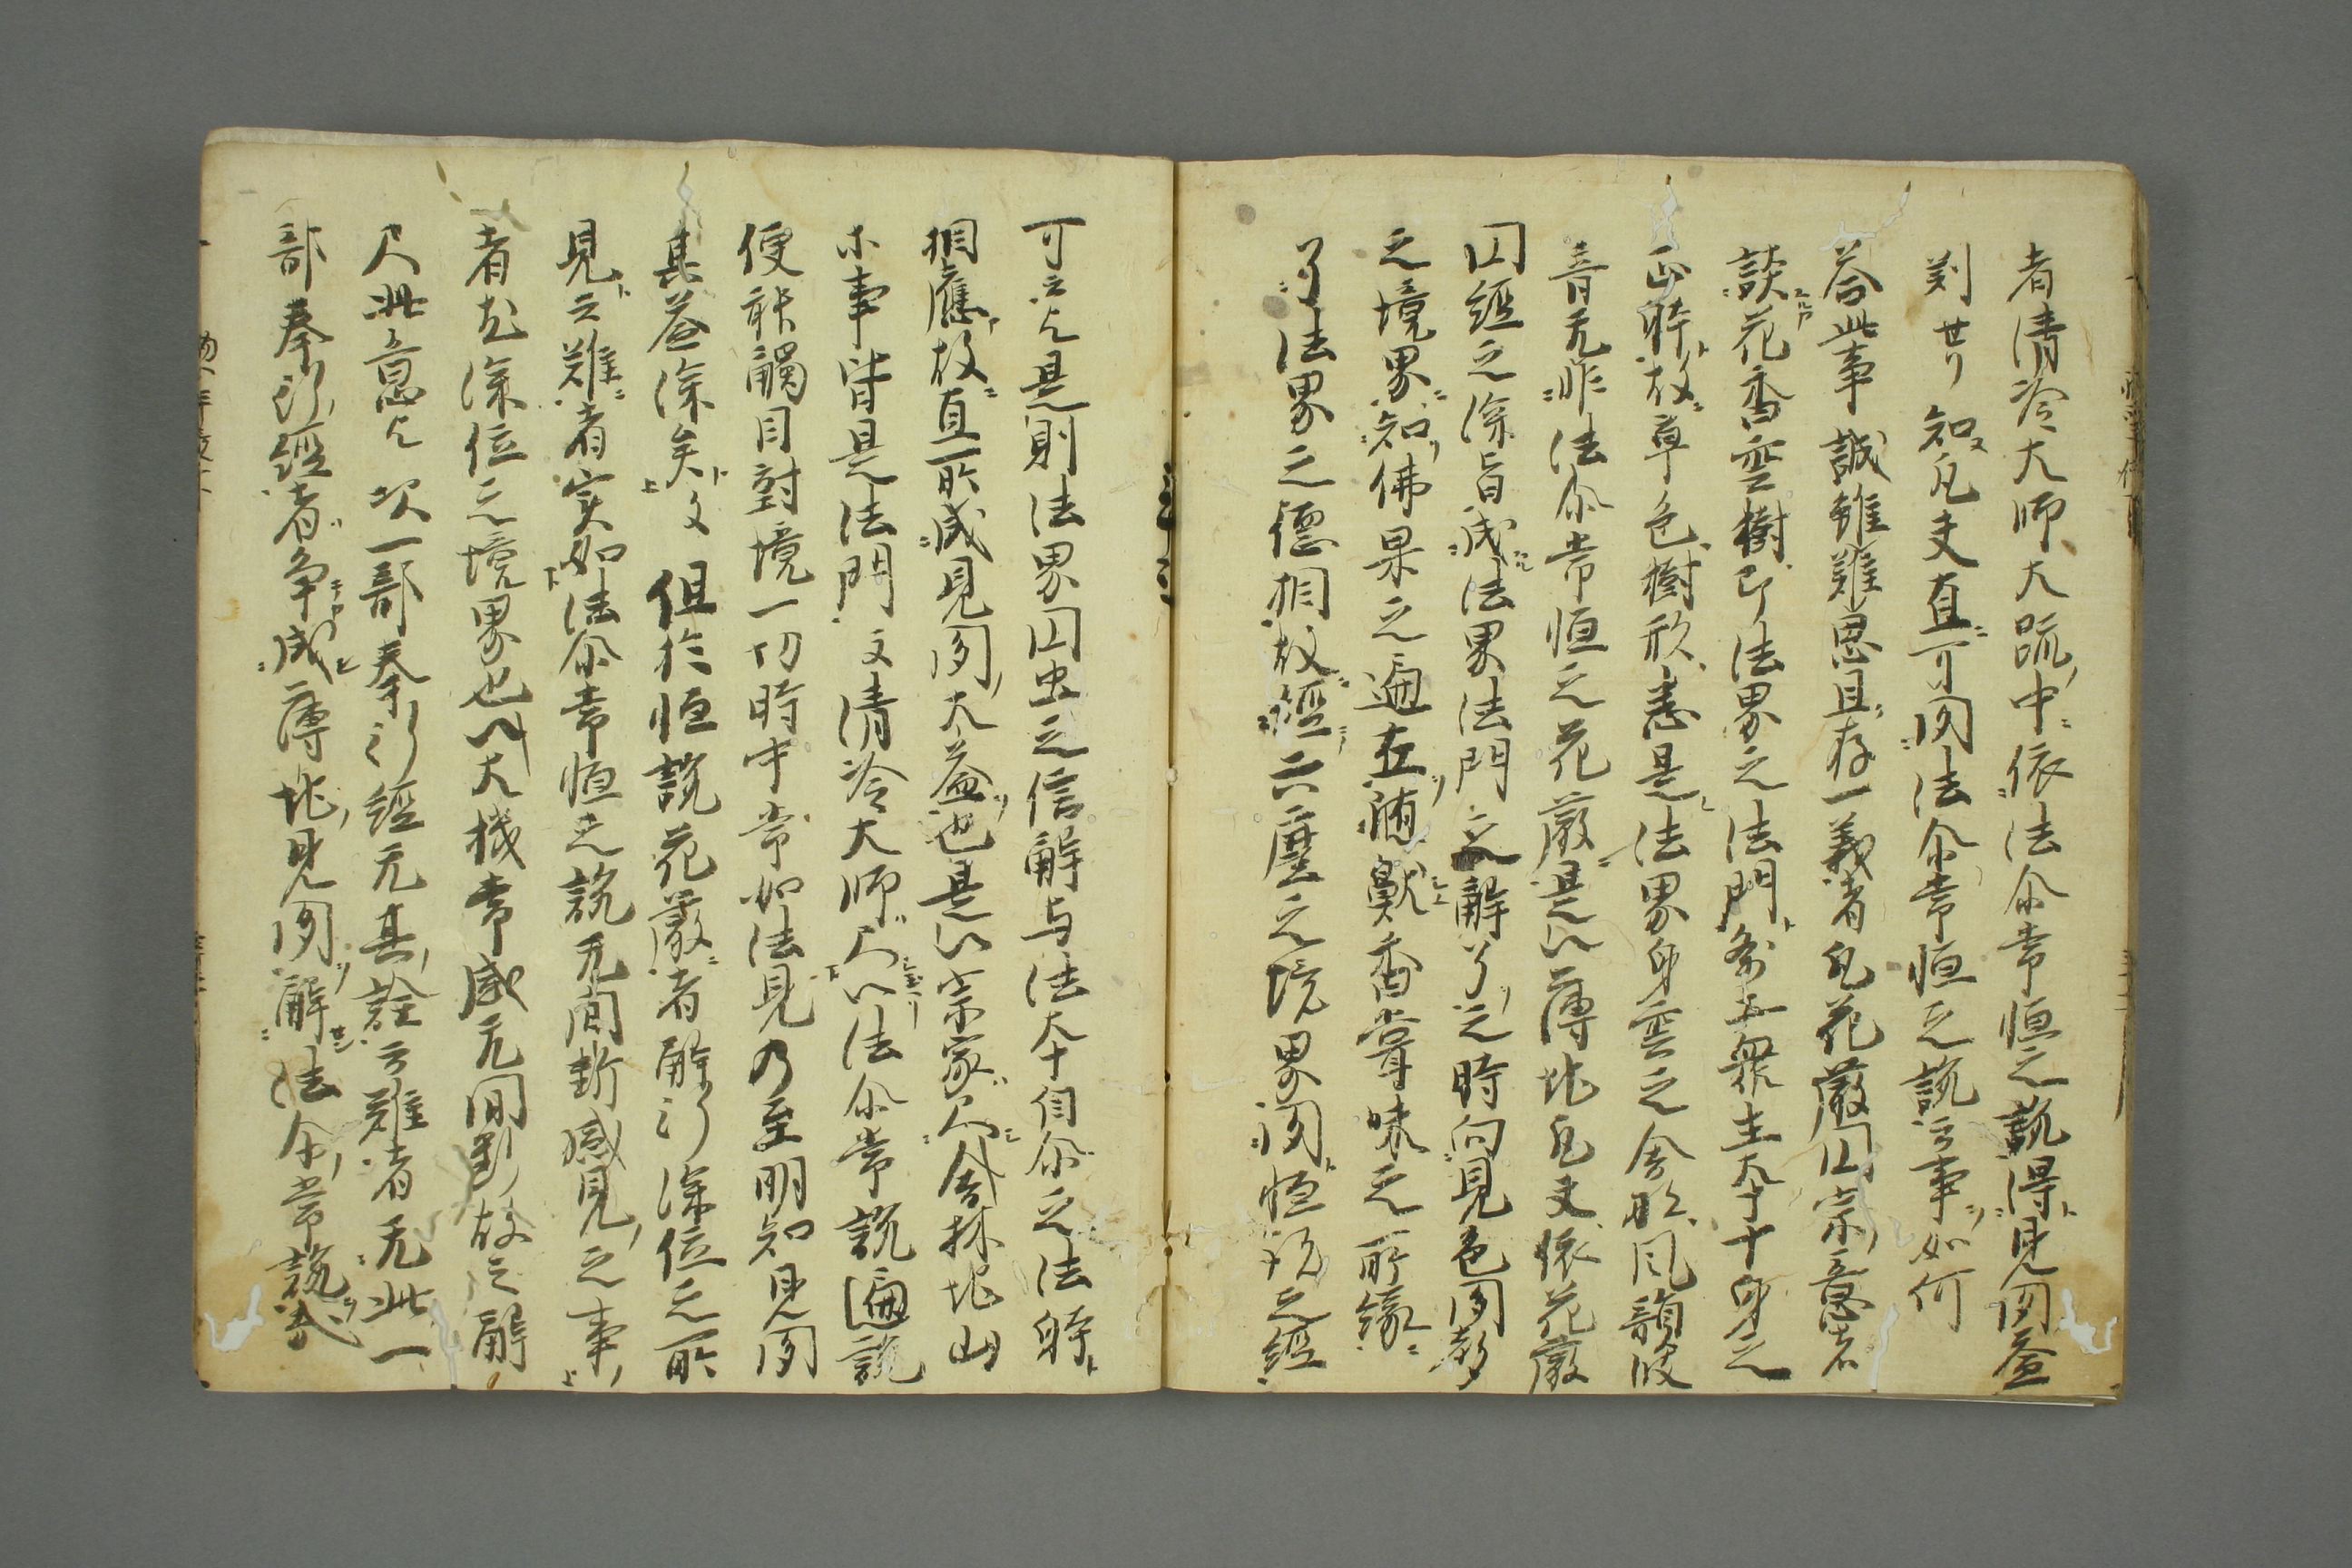 者清冷大師大疏中依法尓常恒之説得見聞益
判せり知ヌ凡夫直可聞法尓常恒之説云事如何
答此事誠雖難思且存一義者凡花厳円宗意者
談花香雲樹即法界之法門 衆生大十十身之
正躰故草色樹形悉是法界身雲之舎那風韻波
音无非法尓常恒之花厳是以薄地凡夫依花厳
円経之深旨成法界法門之解了之時向見色聞声
之境界知佛果之遍在随歎香嘗味之所縁
了法界之徳相故経六塵之境界聞恒説之経
可云也是則法界円虫之信解与法大十自尓之法躰
相應故直所成見聞大益也是以宗家尺舎林地山
ホ事皆是法門文清冷大師尺以法尓常説遍説
便能觸目對境一切時中常如法見乃至明知見聞
其益深矣ト文 但於恒説花嚴者解行深位之所
見云難者実如法尓常恒之説无間断感見之事
者尤深位之境界也以大機常感无間断故之解
尺此意也 次一部奉行経无其詮云難者无此一
部奉行経者争成薄地見聞解法尓常説哉